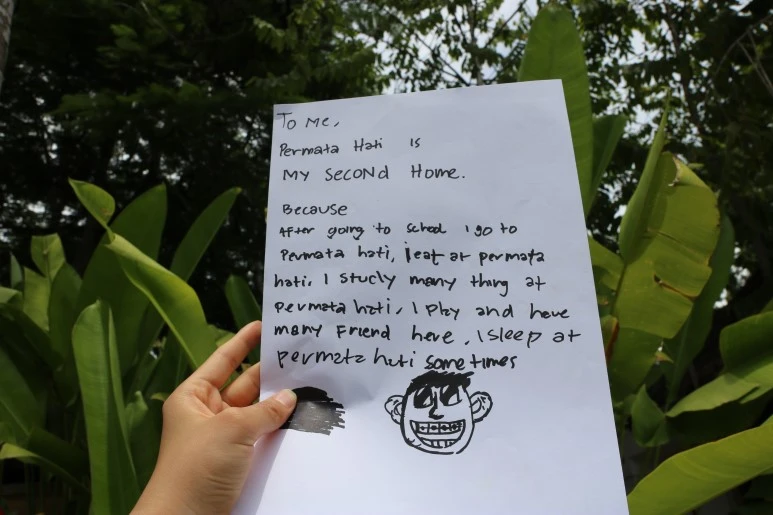 To Me,
Permata Hati is
My Second Home.
Because
After going to school i go to
Permata hati, i eat at permata
hati. I study many thing at
permata hati. I play and have
many Friend here. I sleep at
permata hati sometimes